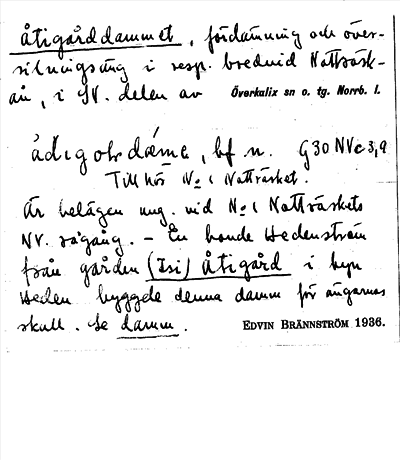 Åtigårddammet, fördämning och över-
silningsäng i resp. bredvid Nattträsk-
ån, i SV. delen av Överkalix sn o. tg. Norrb. l.
ådıgoḷsdǽmə, bf n. G30 NVc3,9
Tillhör No 1 Nattträsket.
Är belägen ung. vid No 1 Nattträskets
NV. rågång. – En bonde Hedenström
från gården (Isi) Åtigård i byn
Heden byggde denna damm för ängarnas
skull. Se damm.
EDVIN BRÄNNSTRÖM 1936.